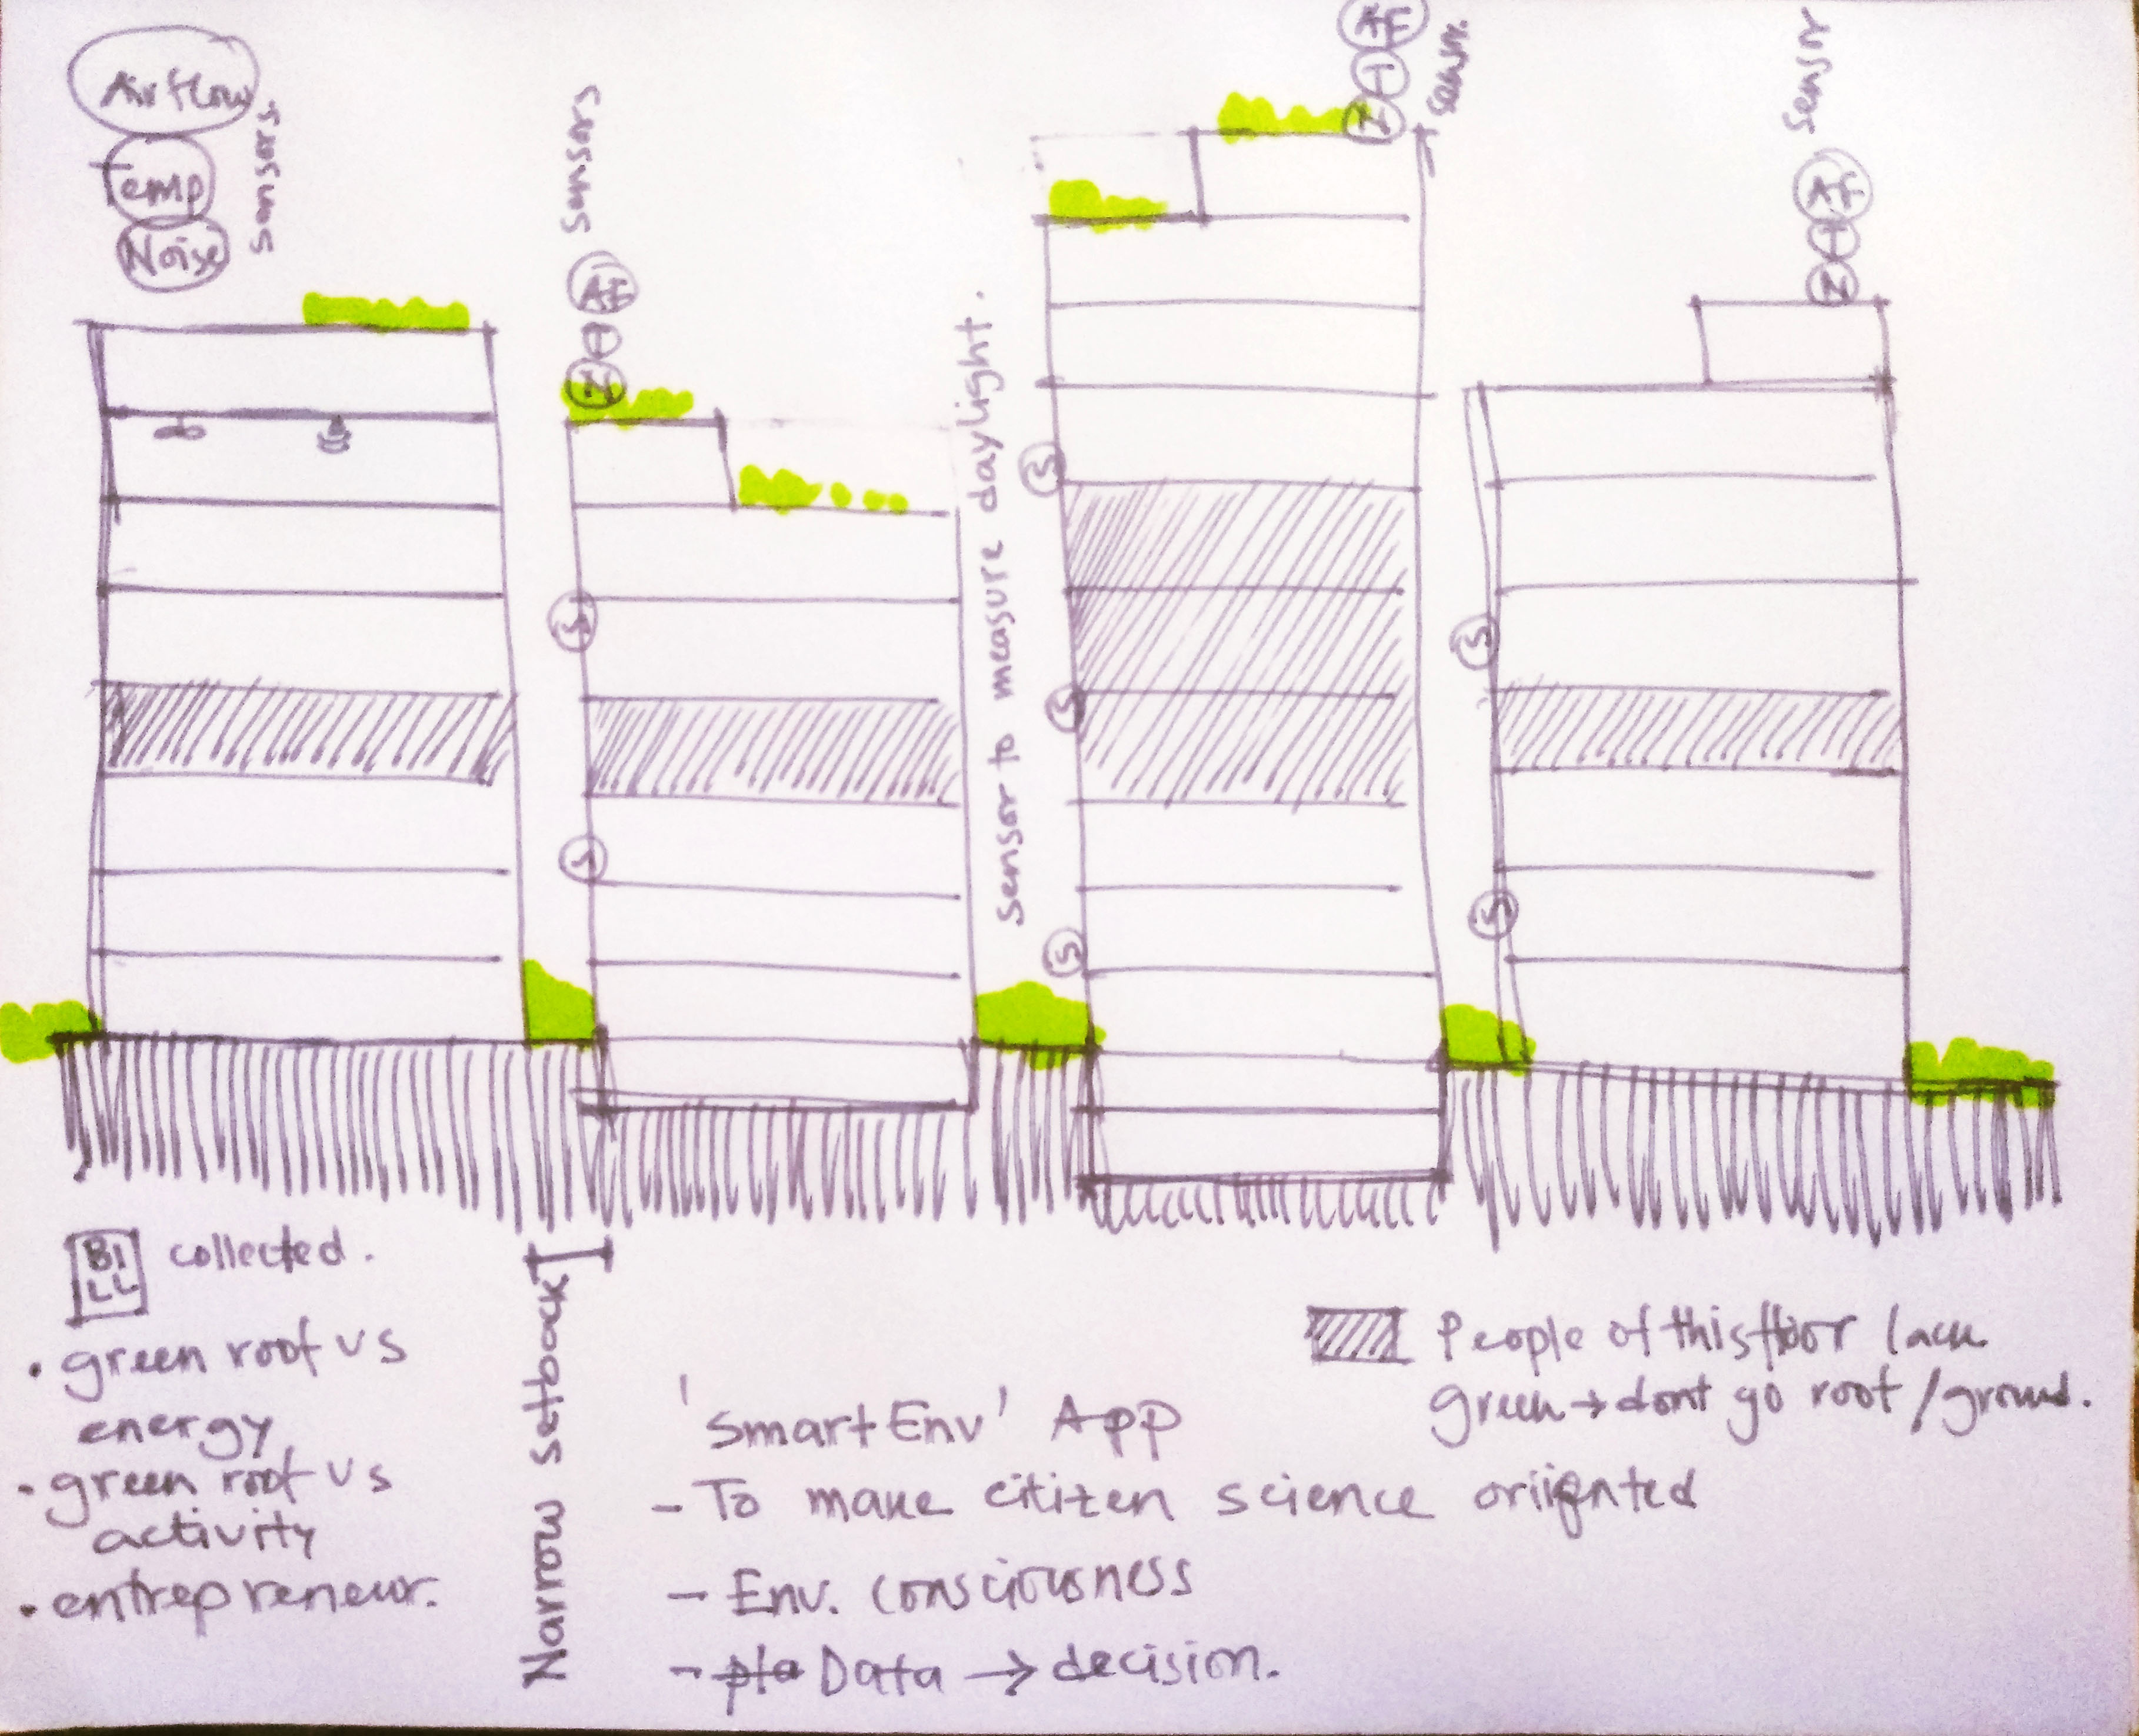 Airflow
Temp
Noise
sensors.
sensors
N
T
AF
sensor to measure daylight.
N
T
AF
sensor
N
T
AF
sensor
S
S
S
S
S
S
S
BI
LL
collected.
• green roof vs
energy
• green roof vs
activity
• entrepreneur.
Narrow setback
'SmartEnv' App
- To make citizen science oriented
- Env. consciousness
- Data → decision.
People of this floor lack
green → dont go roof / ground.